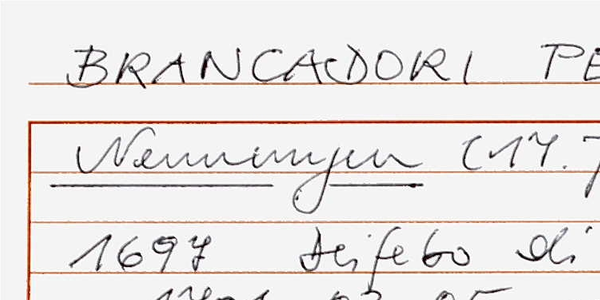 BRANCADORI PE
Nenningen (17.7
1697 Deifebo di